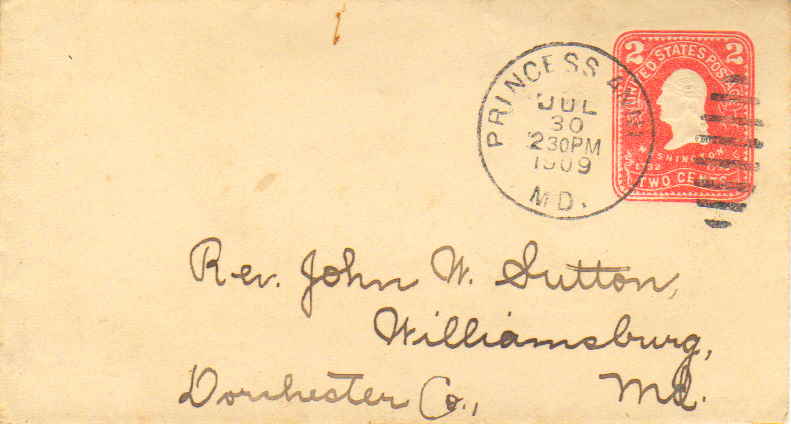 PRINCESS ANNE
JUL
30
230PM
1909
MD.
2 UNITED STATES POSTAGE 2
WASHINGTON
1732
TWO CENTS
Rev. John W. Sutton,
Williamsburg,
Dorchester Co., Md.